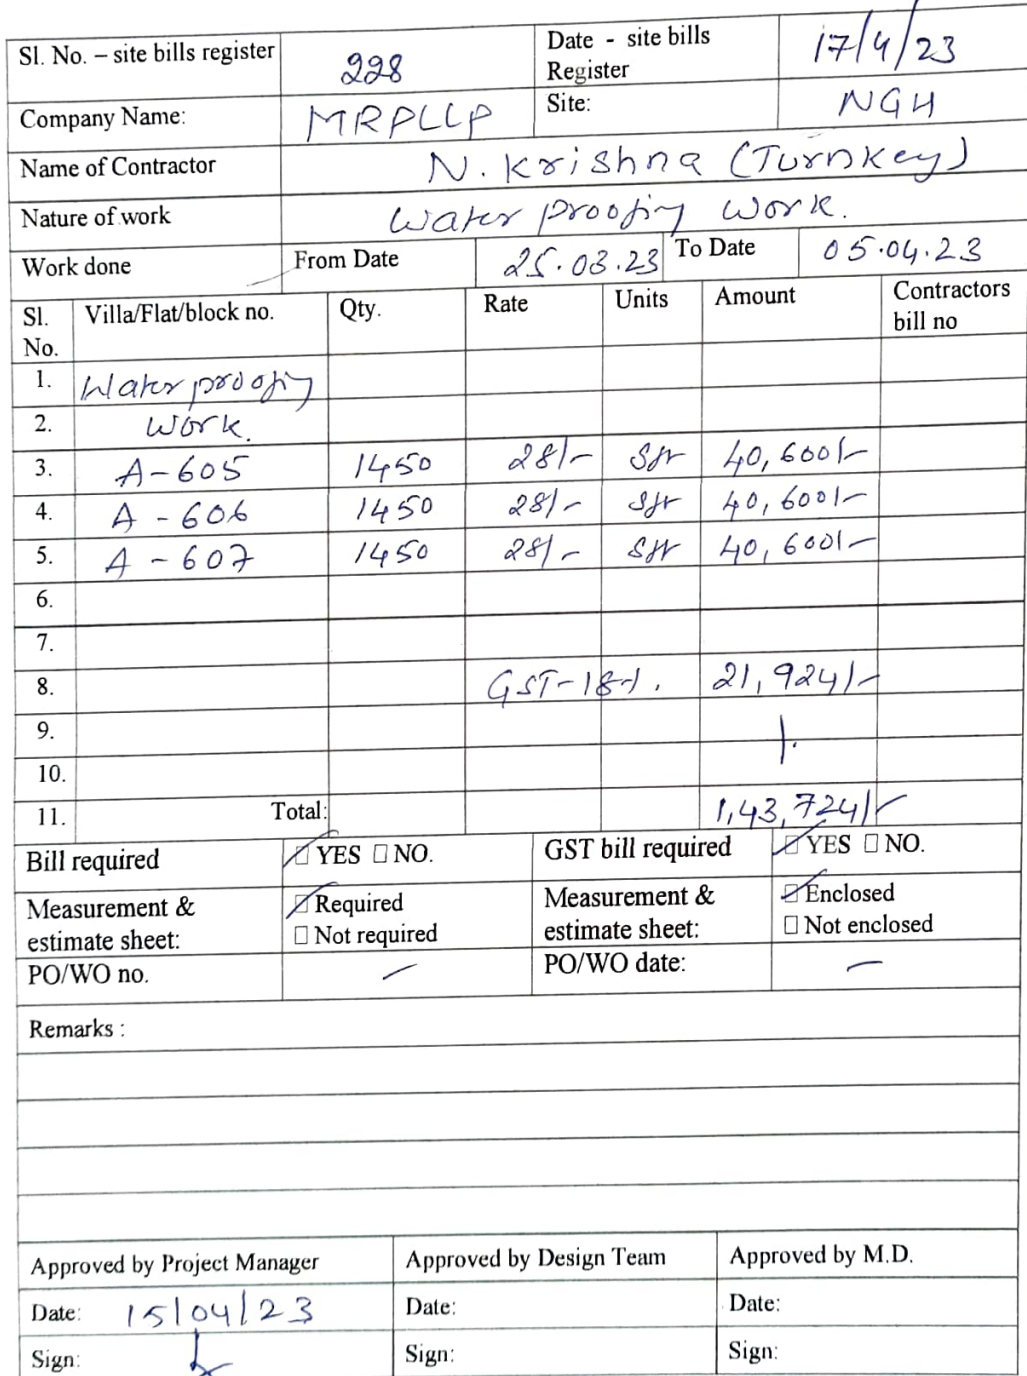 Sl. No. – site bills register 228 Date - site bills Register 17/4/23
Company Name: MRPLLP Site: NGH
Name of Contractor N. Krishna (Turnkey)
Nature of work Water proofing work.
Work done From Date 25.03.23 To Date 05.04.23
Sl. No. Villa/Flat/block no. Qty. Rate Units Amount Contractors bill no
1. Water proofing
2. work.
3. A-605 1450 28/- Sft 40,600/-
4. A-606 1450 28/- Sft 40,600/-
5. A-607 1450 28/- Sft 40,600/-
6.
7.
8. GST-18-/. 21,924/-
9.
10.
11. Total: 1,43,724/-
Bill required YES NO. GST bill required YES NO.
Measurement & estimate sheet: Required Not required Measurement & estimate sheet: Enclosed Not enclosed
PO/WO no. – PO/WO date: –
Remarks :
Approved by Project Manager Approved by Design Team Approved by M.D.
Date: 15/04/23 Date: Date:
Sign: Sign: Sign: